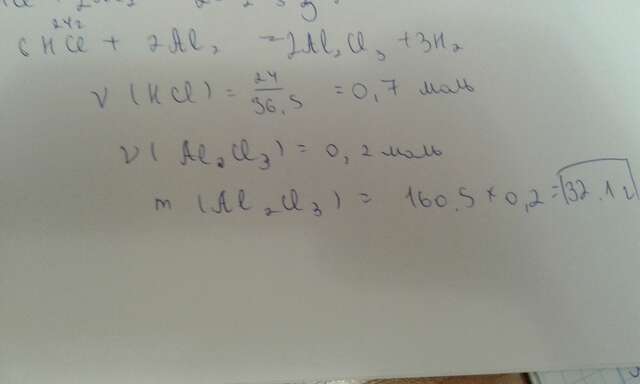 24г
6HCl + 2Al₂ = 2Al₂Cl₃ + 3H₂
ν (HCl) = 24/36.5 = 0,7 моль
ν ( Al₂Cl₃ ) = 0,2 моль
m (Al₂Cl₃) = 160.5 × 0,2 = 32.1 г